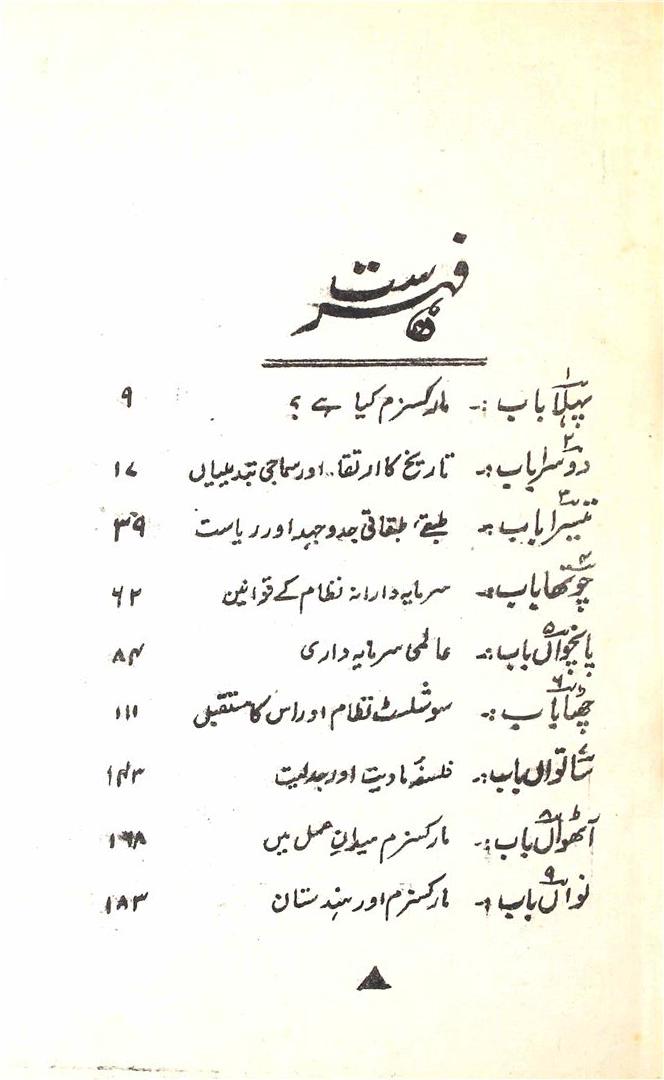 فہرست
پہلا باب :- مارکسزم کیا ہے ؟ ۹
دوسرا باب :- تاریخ کا ارتقاء اور سماجی تبدیلیاں ۱۷
تیسرا باب :- طبقے، طبقاتی جدوجہد اور ریاست ۳۹
چوتھا باب :- سرمایہ دارانہ نظام کے قوانین ۶۲
پانچواں باب :- عالمی سرمایہ داری ۸۴
چھٹا باب :- سوشلسٹ نظام اور اس کا مستقبل ۱۱۱
ساتواں باب :- فلسفۂ مادیت اور جدلیت ۱۴۳
آٹھواں باب :- مارکسزم میدانِ عمل میں ۱۶۸
نواں باب :- مارکسزم اور ہندستان ۱۸۳